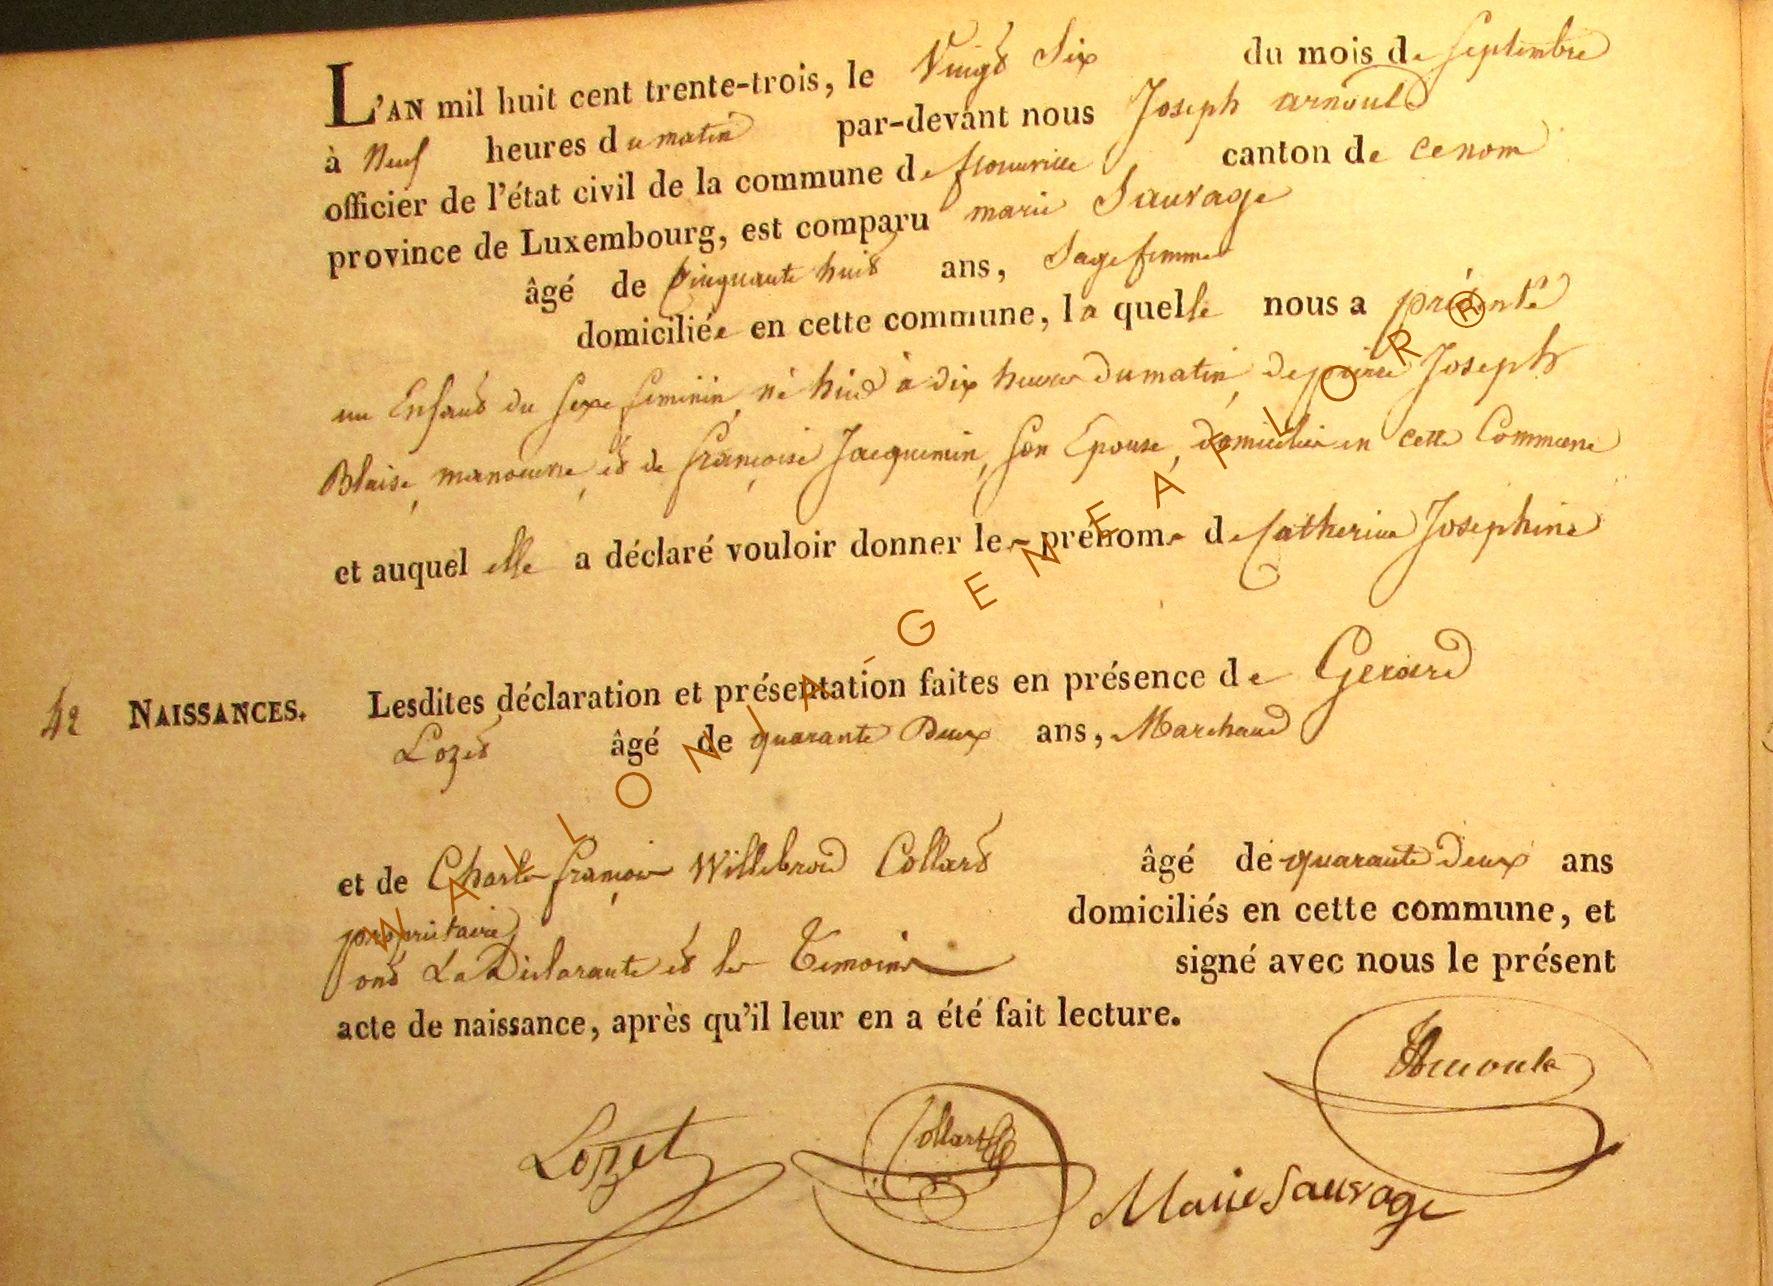 L'AN mil huit cent trente-trois, le Vingt Six du mois de septembre
à Neuf heures du matin par-devant nous Joseph arnould
officier de l'état civil de la commune de florenville canton de ce nom
province de Luxembourg, est comparu marie Sauvage
âgé de Cinquante huit ans, Sage femme
domiciliée en cette commune, la quelle nous a présenté
un Enfant du sexe feminin, né hier à dix heures du matin, de pierre Joseph
Blaise, manoeuvre, et de françoise Jacquemin, son Epouse, domiciliés en cette Commune
et auquel elle a déclaré vouloir donner les prénoms de Catherine Josephine
42 NAISSANCES. Lesdites déclaration et présentation faites en présence de Gerard
Lozet âgé de quarante Deux ans, Marchand
et de Charles françois Willebrord Collard âgé de quarante deux ans
propriétaire domiciliés en cette commune, et
ont La Déclarante et les Temoins signé avec nous le présent
acte de naissance, après qu'il leur en a été fait lecture.
Arnould
Lozet Collart Marie Sauvage
WALLONIA-GENEAFLOR R